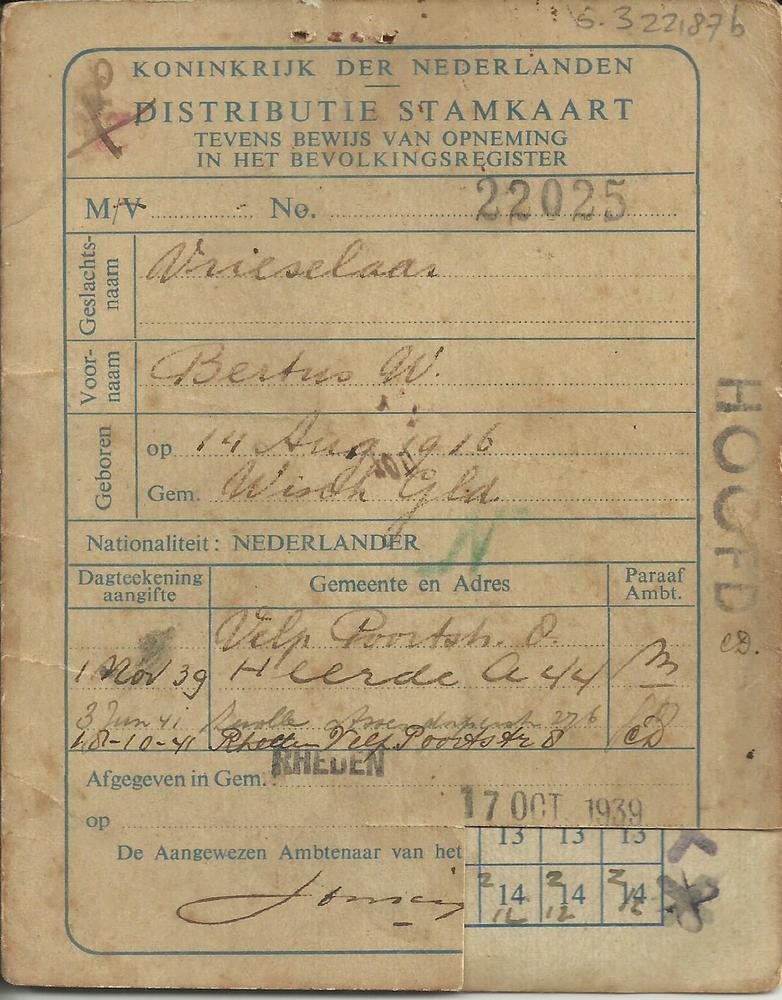 S. 322187b
KONINKRIJK DER NEDERLANDEN
DISTRIBUTIE STAMKAART
TEVENS BEWIJS VAN OPNEMING
IN HET BEVOLKINGSREGISTER
M/V No. 22025
Geslachts-
naam
Vrieselaar
Voor-
naam
Bertus W.
Geboren
op 14 Aug 1916
Gem. Wisch Gld.
Nationaliteit: NEDERLANDER
N
HOOFD
CD.
Dagteekening
aangifte
Gemeente en Adres
Paraaf
Ambt.
Velp Poortstr. 8.
1 Nov 39 Heerde A 44
3 Jun 41 Zwolle 276
18-10-41 Rheden Velp Poortstr 8 CD
Afgegeven in Gem. RHEDEN
op 17 OCT 1939
De Aangewezen Ambtenaar van het
13 13 13
14 14 14